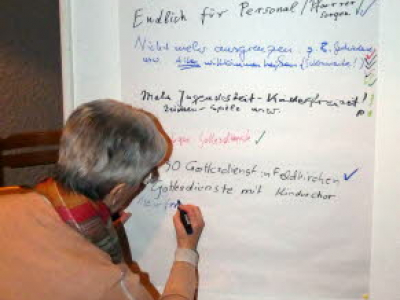 Endlich für Personal / Pfarrer
sorgen
Nicht mehr ausgrenzen z.B. Geschiedene
usw. Alle willkommen heißen
Mehr Jugendarbeit - Kinderfreizeit!
usw.
Gottesdienste
30 Gottesdienst in Feldkirchen
Gottesdienste mit Kinderchor